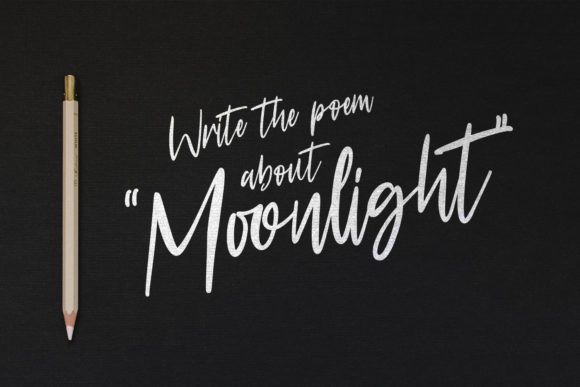 Write the poem
about
“Moonlight”